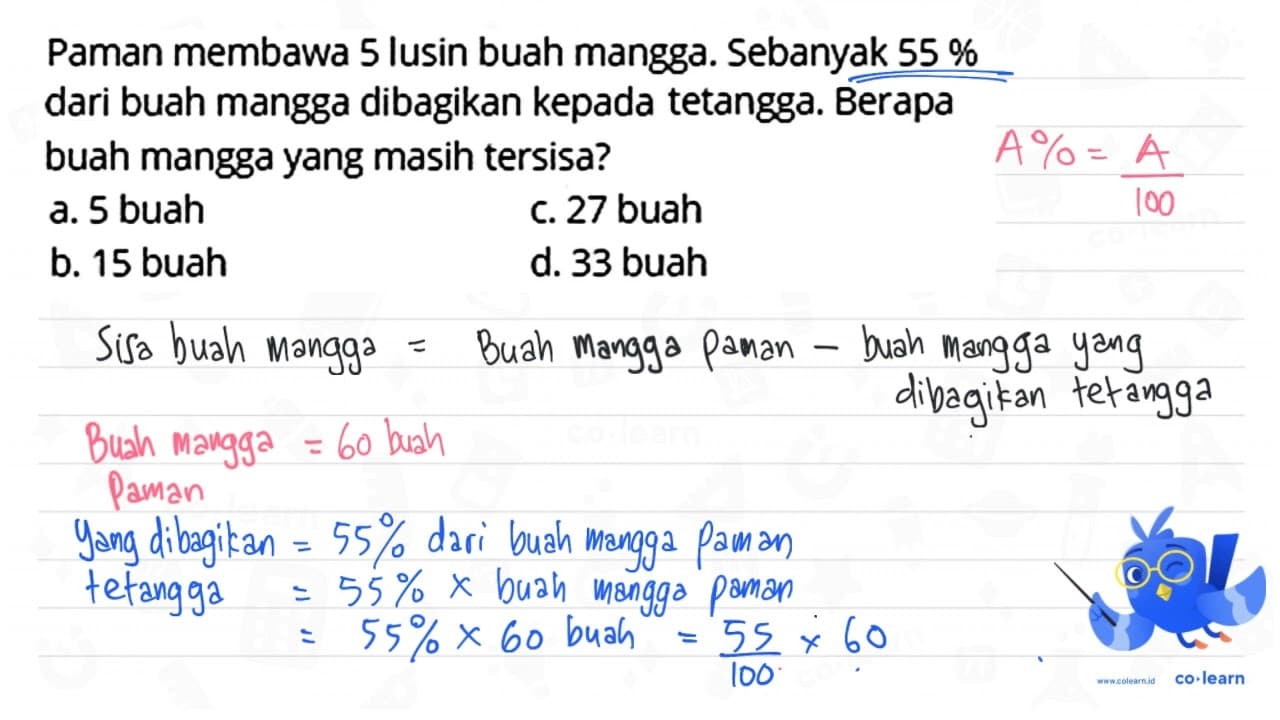 Paman membawa 5 lusin buah mangga. Sebanyak 55 %
dari buah mangga dibagikan kepada tetangga. Berapa
buah mangga yang masih tersisa?
A% = A/100
a. 5 buah
c. 27 buah
b. 15 buah
d. 33 buah
Sisa buah mangga = Buah mangga Paman – buah mangga yang
dibagikan tetangga
Buah mangga = 60 buah
Paman
yang dibagikan = 55% dari buah mangga Paman
tetangga = 55% × buah mangga paman
= 55% × 60 buah = 55/100 × 60
www.colearn.id co·learn